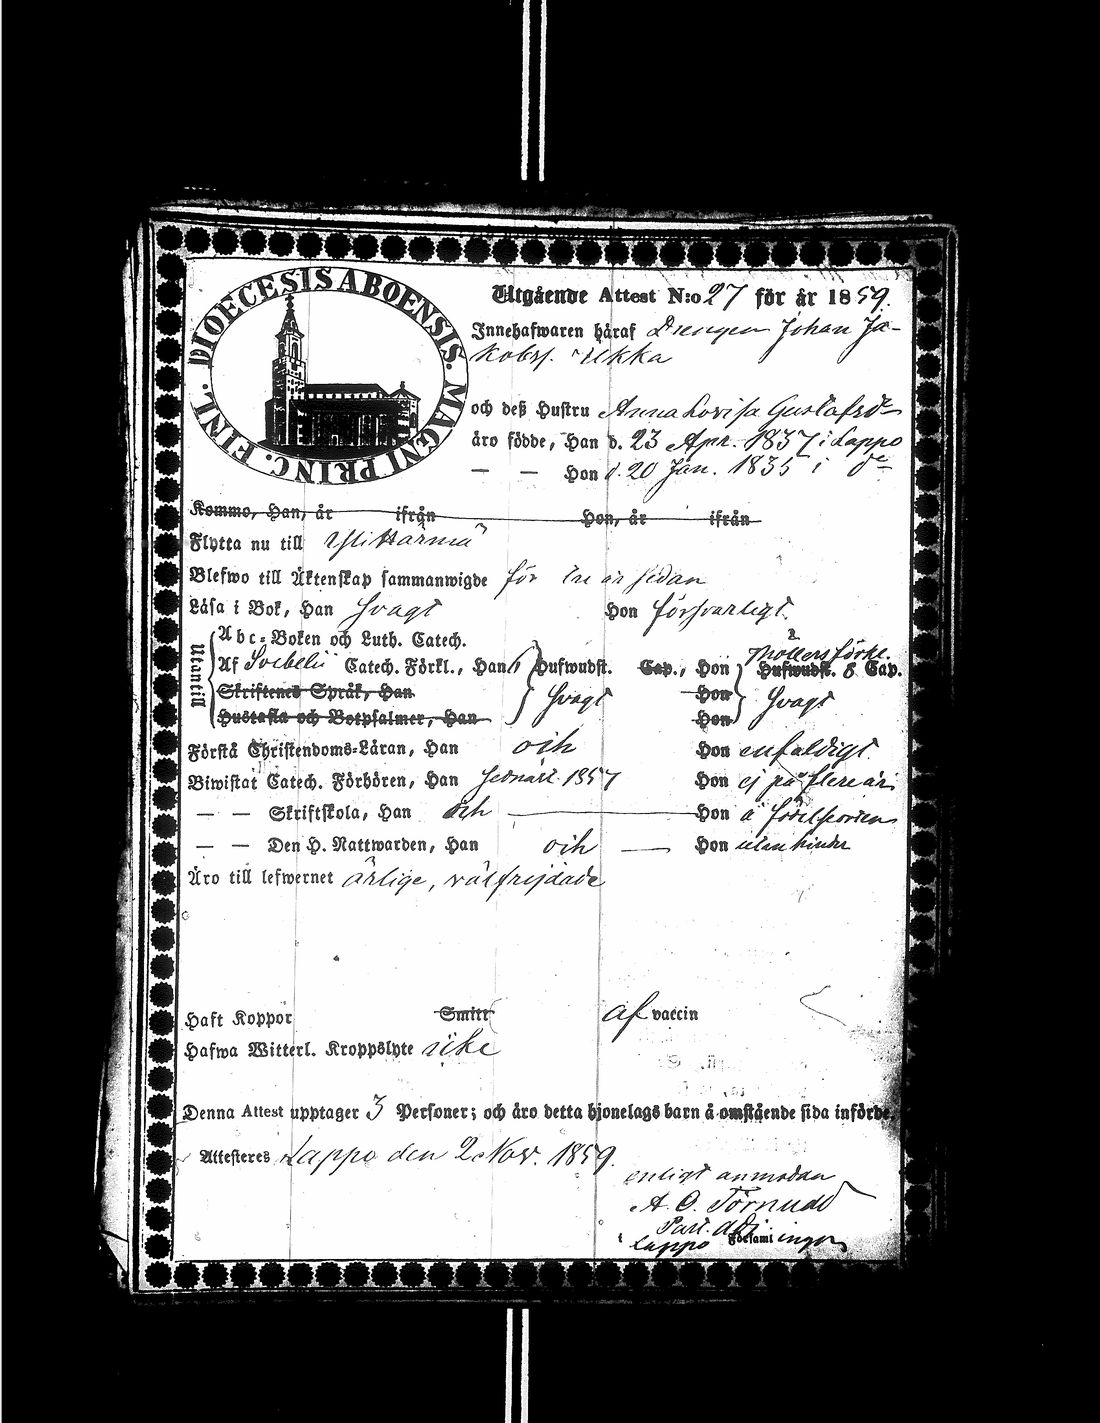 DIOECESIS ABOENSIS. MAGNI PRINC. FINL.
Utgående Attest N:o 27 för år 1859.
Innehafwaren häraf Drengen Johan Ja-
kobss.
och deß Hustru Anna Lovisa Gustafsdr
äro födde, Han d. 23 Apr. 1837 i Lappo
— — Hon d. 20 Jan. 1835 i do
Kommo, Han, år ifrån Hon, år ifrån
Flytta nu till Ylihärmä
Blefwo till Äktenskap sammanwigde för tre år sedan
Läsa i Bok, Han svagt Hon försvarligt.
Utantill
Abc-Boken och Luth. Catech.
Af Svebelii Catech. Förkl., Han Hufwudst. Cap., Hon Möllers förkl. Hufwudst. 8 Cap.
Skriftenes Språk, Han svagt Hon svagt
Hustafla och Botpsalmer, Han Hon
Förstå Christendoms-Läran, Han och Hon enfaldigt.
Biwistat Catech. Förhören, Han sednast 1857 Hon ej på flere år
— — Skriftskola, Han och Hon å födelseorten
— — Den H. Nattwarden, Han och — Hon utan hinder
Äro till lefwernet ärlige, välfrejdade
Haft Koppor Smitt af vaccin
Hafwa Witterl. Kroppslyte icke
Denna Attest upptager 3 Personer; och äro detta hjonelags barn å omstående sida införde.
Attesteras Lappo den 2 Nov. 1859.
enligt anmodan
A. O. Törnudd
Past. adj.
i Lappo Församlingen